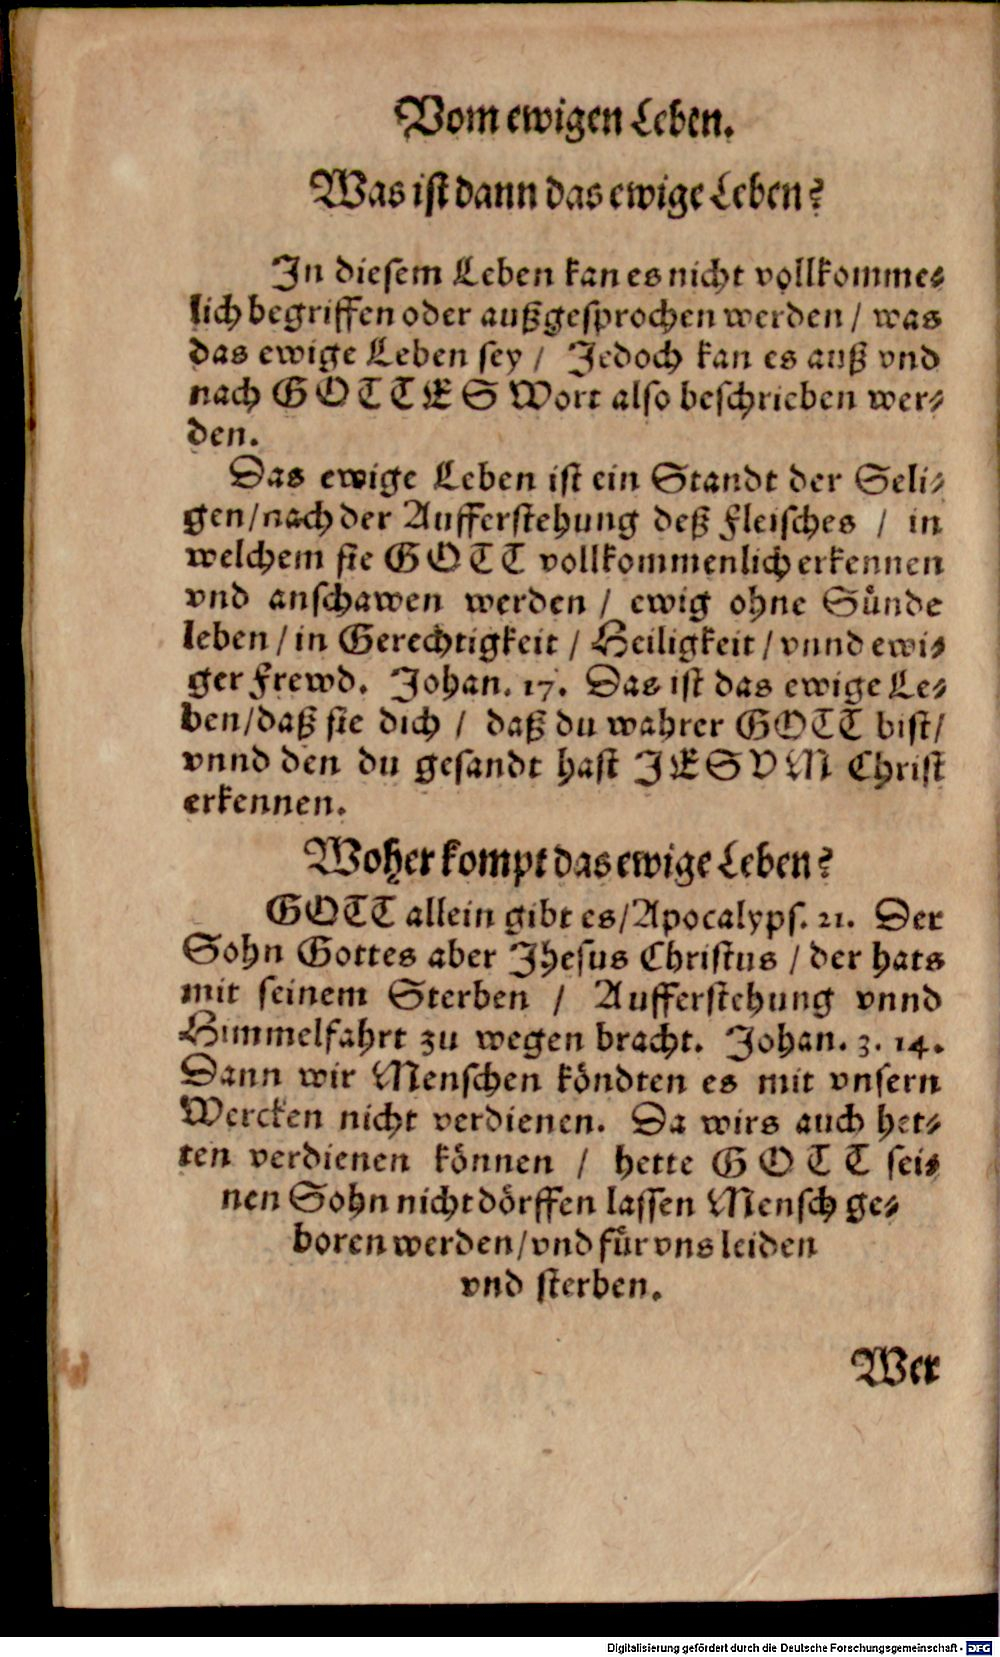 Vom ewigen Leben.
Was ist dann das ewige Leben?
In diesem Leben kan es nicht vollkomme-
lich begriffen oder außgesprochen werden / was
das ewige Leben sey / Jedoch kan es auß vnd
nach GOTTES Wort also beschrieben wer-
den.
Das ewige Leben ist ein Standt der Seli-
gen/nach der Aufferstehung deß Fleisches / in
welchem sie GOTT vollkommenlich erkennen
vnd anschawen werden / ewig ohne Sünde
leben / in Gerechtigkeit / Heiligkeit / vnnd ewi-
ger Frewd. Johan. 17. Das ist das ewige Le-
ben/daß sie dich / daß du wahrer GOTT bist/
vnnd den du gesandt hast JESVM Christ
erkennen.
Woher kompt das ewige Leben?
GOTT allein gibt es/Apocalyps. 21. Der
Sohn Gottes aber Jhesus Christus / der hats
mit seinem Sterben / Aufferstehung vnnd
Himmelfahrt zu wegen bracht. Johan. 3. 14.
Dann wir Menschen köndten es mit vnsern
Wercken nicht verdienen. Da wirs auch het-
ten verdienen können / hette GOTT sei-
nen Sohn nicht dörffen lassen Mensch ge-
boren werden/vnd für vns leiden
vnd sterben.
Wer
Digitalisierung gefördert durch die Deutsche Forschungsgemeinschaft - DFG